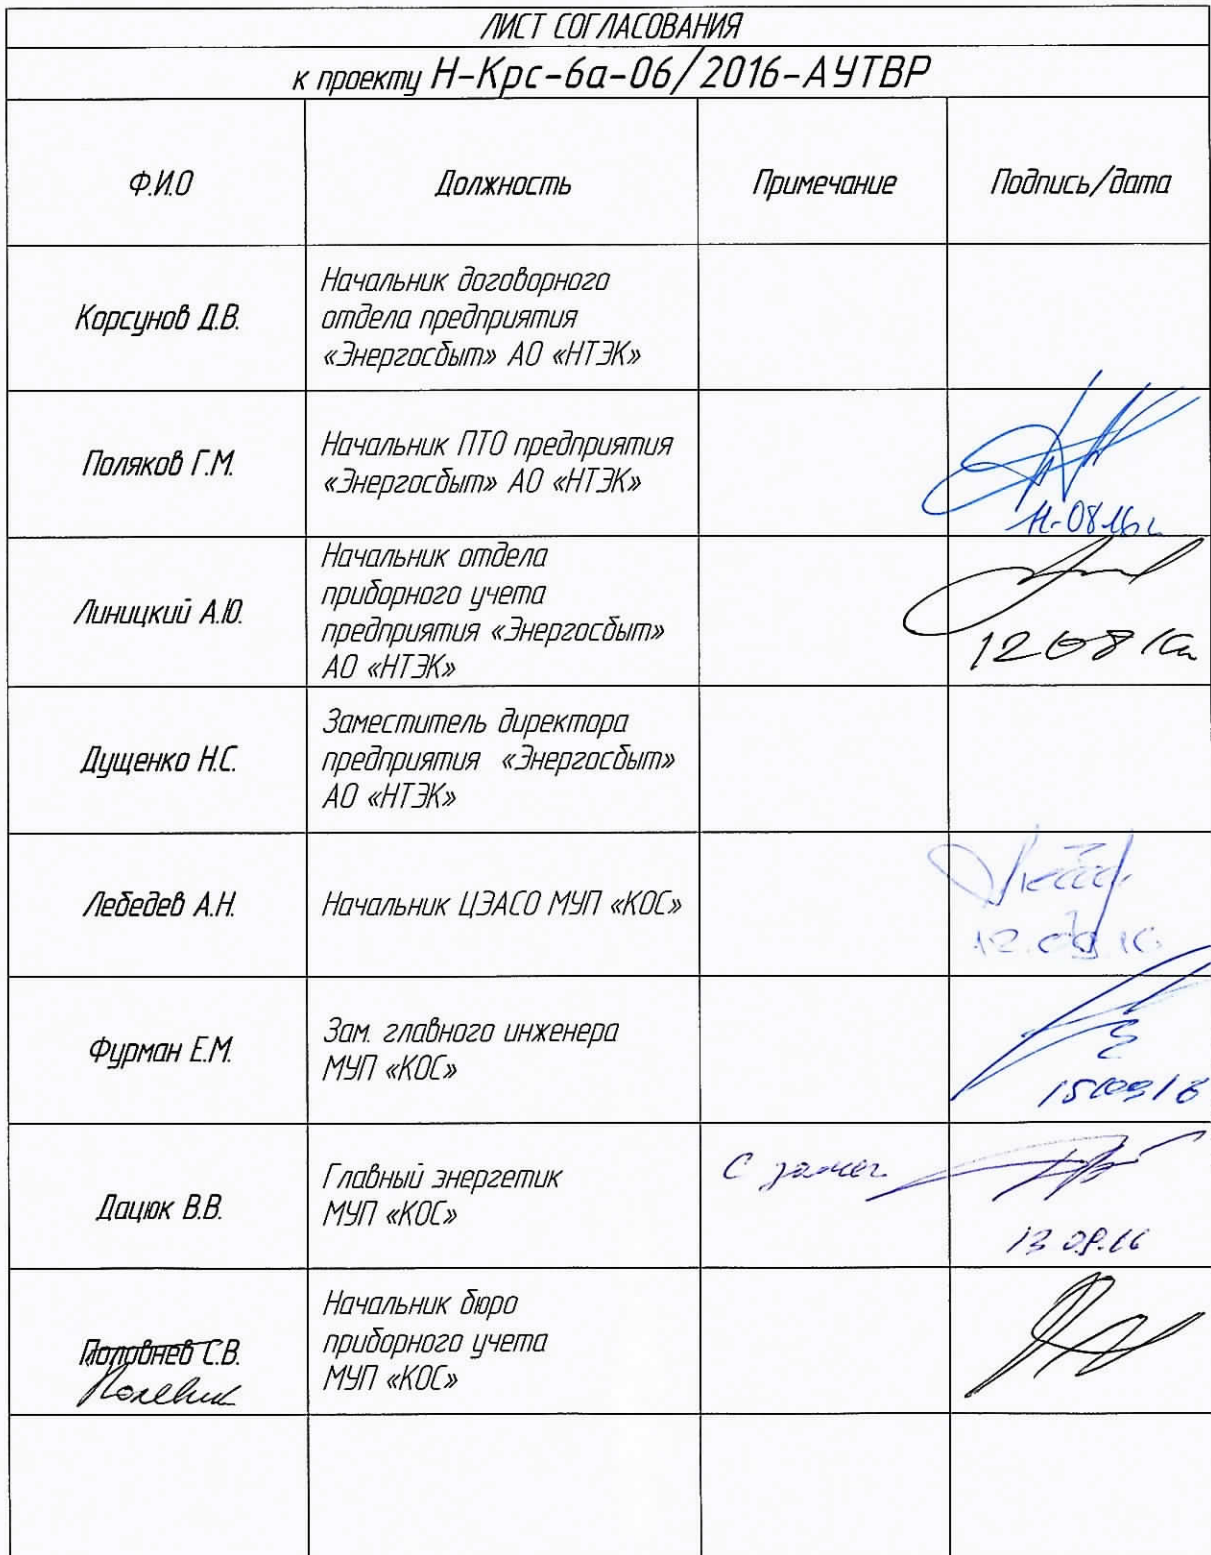 ЛИСТ СОГЛАСОВАНИЯ
к проекту Н-Крс-6а-06/2016-АУТВР
Ф.И.О
Должность
Примечание
Подпись/дата
Корсунов Д.В.
Начальник договорного
отдела предприятия
«Энергосбыт» АО «НТЭК»
Поляков Г.М.
Начальник ПТО предприятия
«Энергосбыт» АО «НТЭК»
11-08.16г
Линицкий А.Ю.
Начальник отдела
приборного учета
предприятия «Энергосбыт»
АО «НТЭК»
12 08 16г
Дущенко Н.С.
Заместитель директора
предприятия «Энергосбыт»
АО «НТЭК»
Лебедев А.Н.
Начальник ЦЭАСО МУП «КОС»
Фурман Е.М.
Зам. главного инженера
МУП «КОС»
Дацюк В.В.
Главный энергетик
МУП «КОС»
С замеч
Половнев С.В.
Начальник бюро
приборного учета
МУП «КОС»